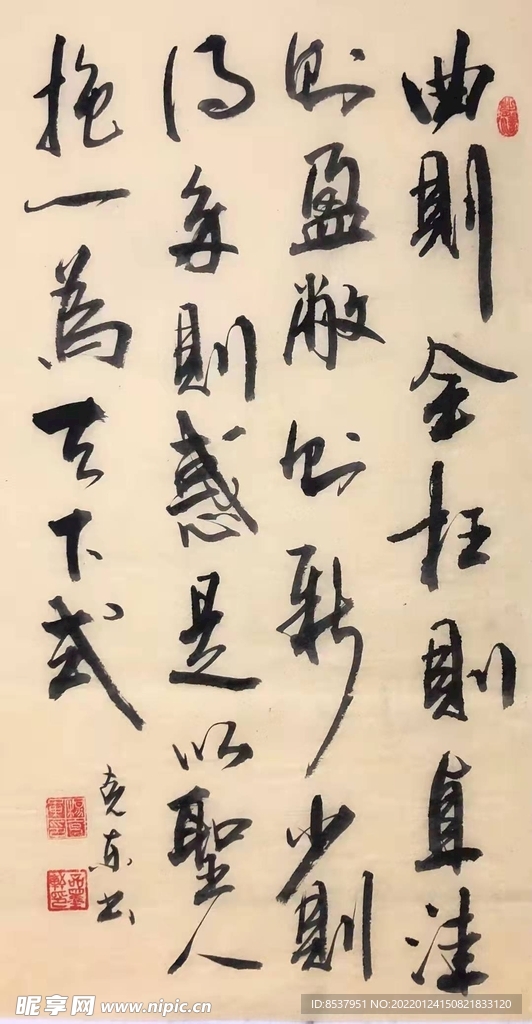 曲則全枉則直洼
則盈敝則新少則
得多則惑是以聖人
抱一為天下式
克东书
昵享网 www.nipic.cn
ID:8537951 NO:20220124150821833120